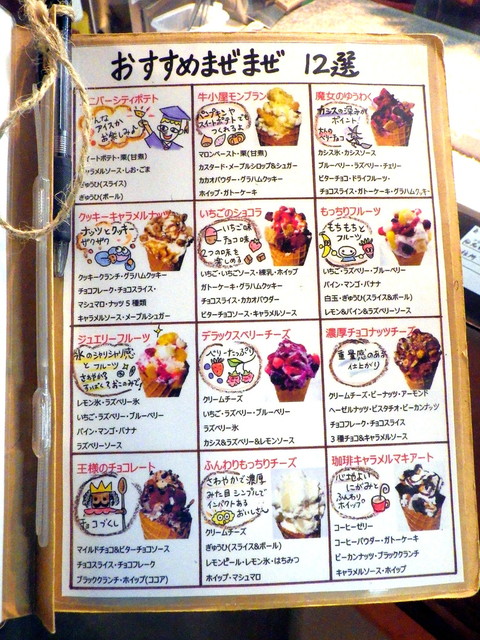 おすすめまぜまぜ 12選
ニバーシティポテト
んな
アイスか
お楽しみ♪
イートポテト・栗(甘煮)
ャラメルソース・しお・ごま
ぎゅうひ(スライス)
ぎゅうひ(ボール)
牛小屋モンブラン
パンプキンや
スイートポテトでも
つくれるよ
マロンペースト・栗(甘煮)
カスタード・メープルシロップ&シュガー
カカオパウダー・グラハムクッキー
ホイップ・ガトーケーキ
魔女のゆうわく
カシスの深みが
ポイント
カシス氷・カシスソース
ブルーベリー・ラズベリー・チェリー
ビターチョコ・ドライフルーツ・
チョコスライス・ガトーケーキ・グラハムクッキー
クッキーキャラメルナッツ
ナッツとクッキー
ザクザク
クッキークランチ・グラハムクッキー
チョコフレーク・チョコスライス・
マシュマロ・ナッツ5種類
キャラメルソース・メープルシュガー
いちごのショコラ
いちご味
チョコ味
2つの味を
楽しめる
いちご・いちごソース・練乳・ホイップ
ガトーケーキ・グラハムクッキー
チョコスライス・カカオパウダー
ビターチョコソース・キャラメルソース
もっちりフルーツ
もちもちと
フルーツ
いちご・ラズベリー・ブルーベリー
パイン・マンゴ・バナナ
白玉・ぎゅうひ(スライス&ボール)
レモン&パイン&ラズベリーソース
ジュエリーフルーツ
氷のシャリシャリ感
と フルーツ
さわやか
すっぱくておこのみで!
レモン氷・ラズベリー氷
いちご・ラズベリー・ブルーベリー
パイン・マンゴ・バナナ
ラズベリーソース
デラックスベリーチーズ
ベリーたっぷり
クリームチーズ
いちご・ラズベリー・ブルーベリー
ラズベリー氷
カシス&ラズベリー&レモンソース
濃厚チョコナッツチーズ
重量感のある
仕上がり
クリームチーズ・ピーナッツ・アーモンド
ヘーゼルナッツ・ピスタチオ・ピーカンナッツ
チョコフレーク・チョコスライス
3種チョコ&キャラメルソース
王様のチョコレート
チョコづくし
マイルドチョコ&ビターチョコソース
チョコスライス・チョコフレーク
ブラッククランチ・ホイップ(ココア)
ふんわりもっちりチーズ
さわやかで濃厚
みた目シンプルで
インパクトある
おいしさん
クリームチーズ
ぎゅうひ(スライス&ボール)
レモンピール・レモン氷・はちみつ
ホイップ・マシュマロ
珈琲キャラメルマキアート
心地よい
にがみと
ふんわり
ホイップ。
コーヒーゼリー
コーヒーパウダー・ガトーケーキ
ピーカンナッツ・ブラッククランチ
キャラメルソース・ホイップ